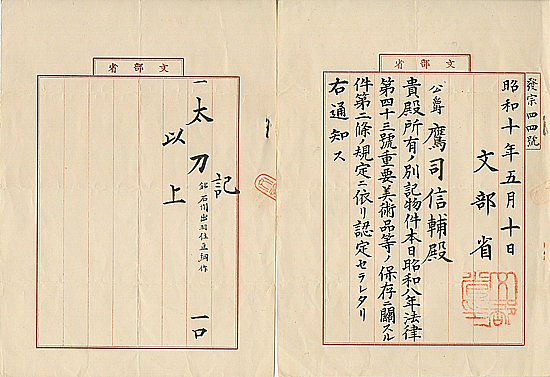 文部省
發宗四四號
昭和十年五月十日
文部省
公爵 鷹司信輔殿
貴殿所有ノ別記物件本日昭和八年法律
第四十三號重要美術品等ノ保存ニ關スル
件第二條ノ規定ニ依リ認定セラレタリ
右通知ス
文部省
記
一太刀 銘石州出羽住直綱作 一口
以上